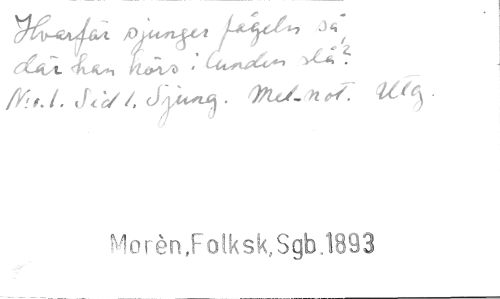 Hvarför sjunger fågeln så,
där han hörs i lunden slå?
N:o. 1. Sid 1. Sjung. Mel-not. Utg.
Morèn,Folksk,Sgb.1893